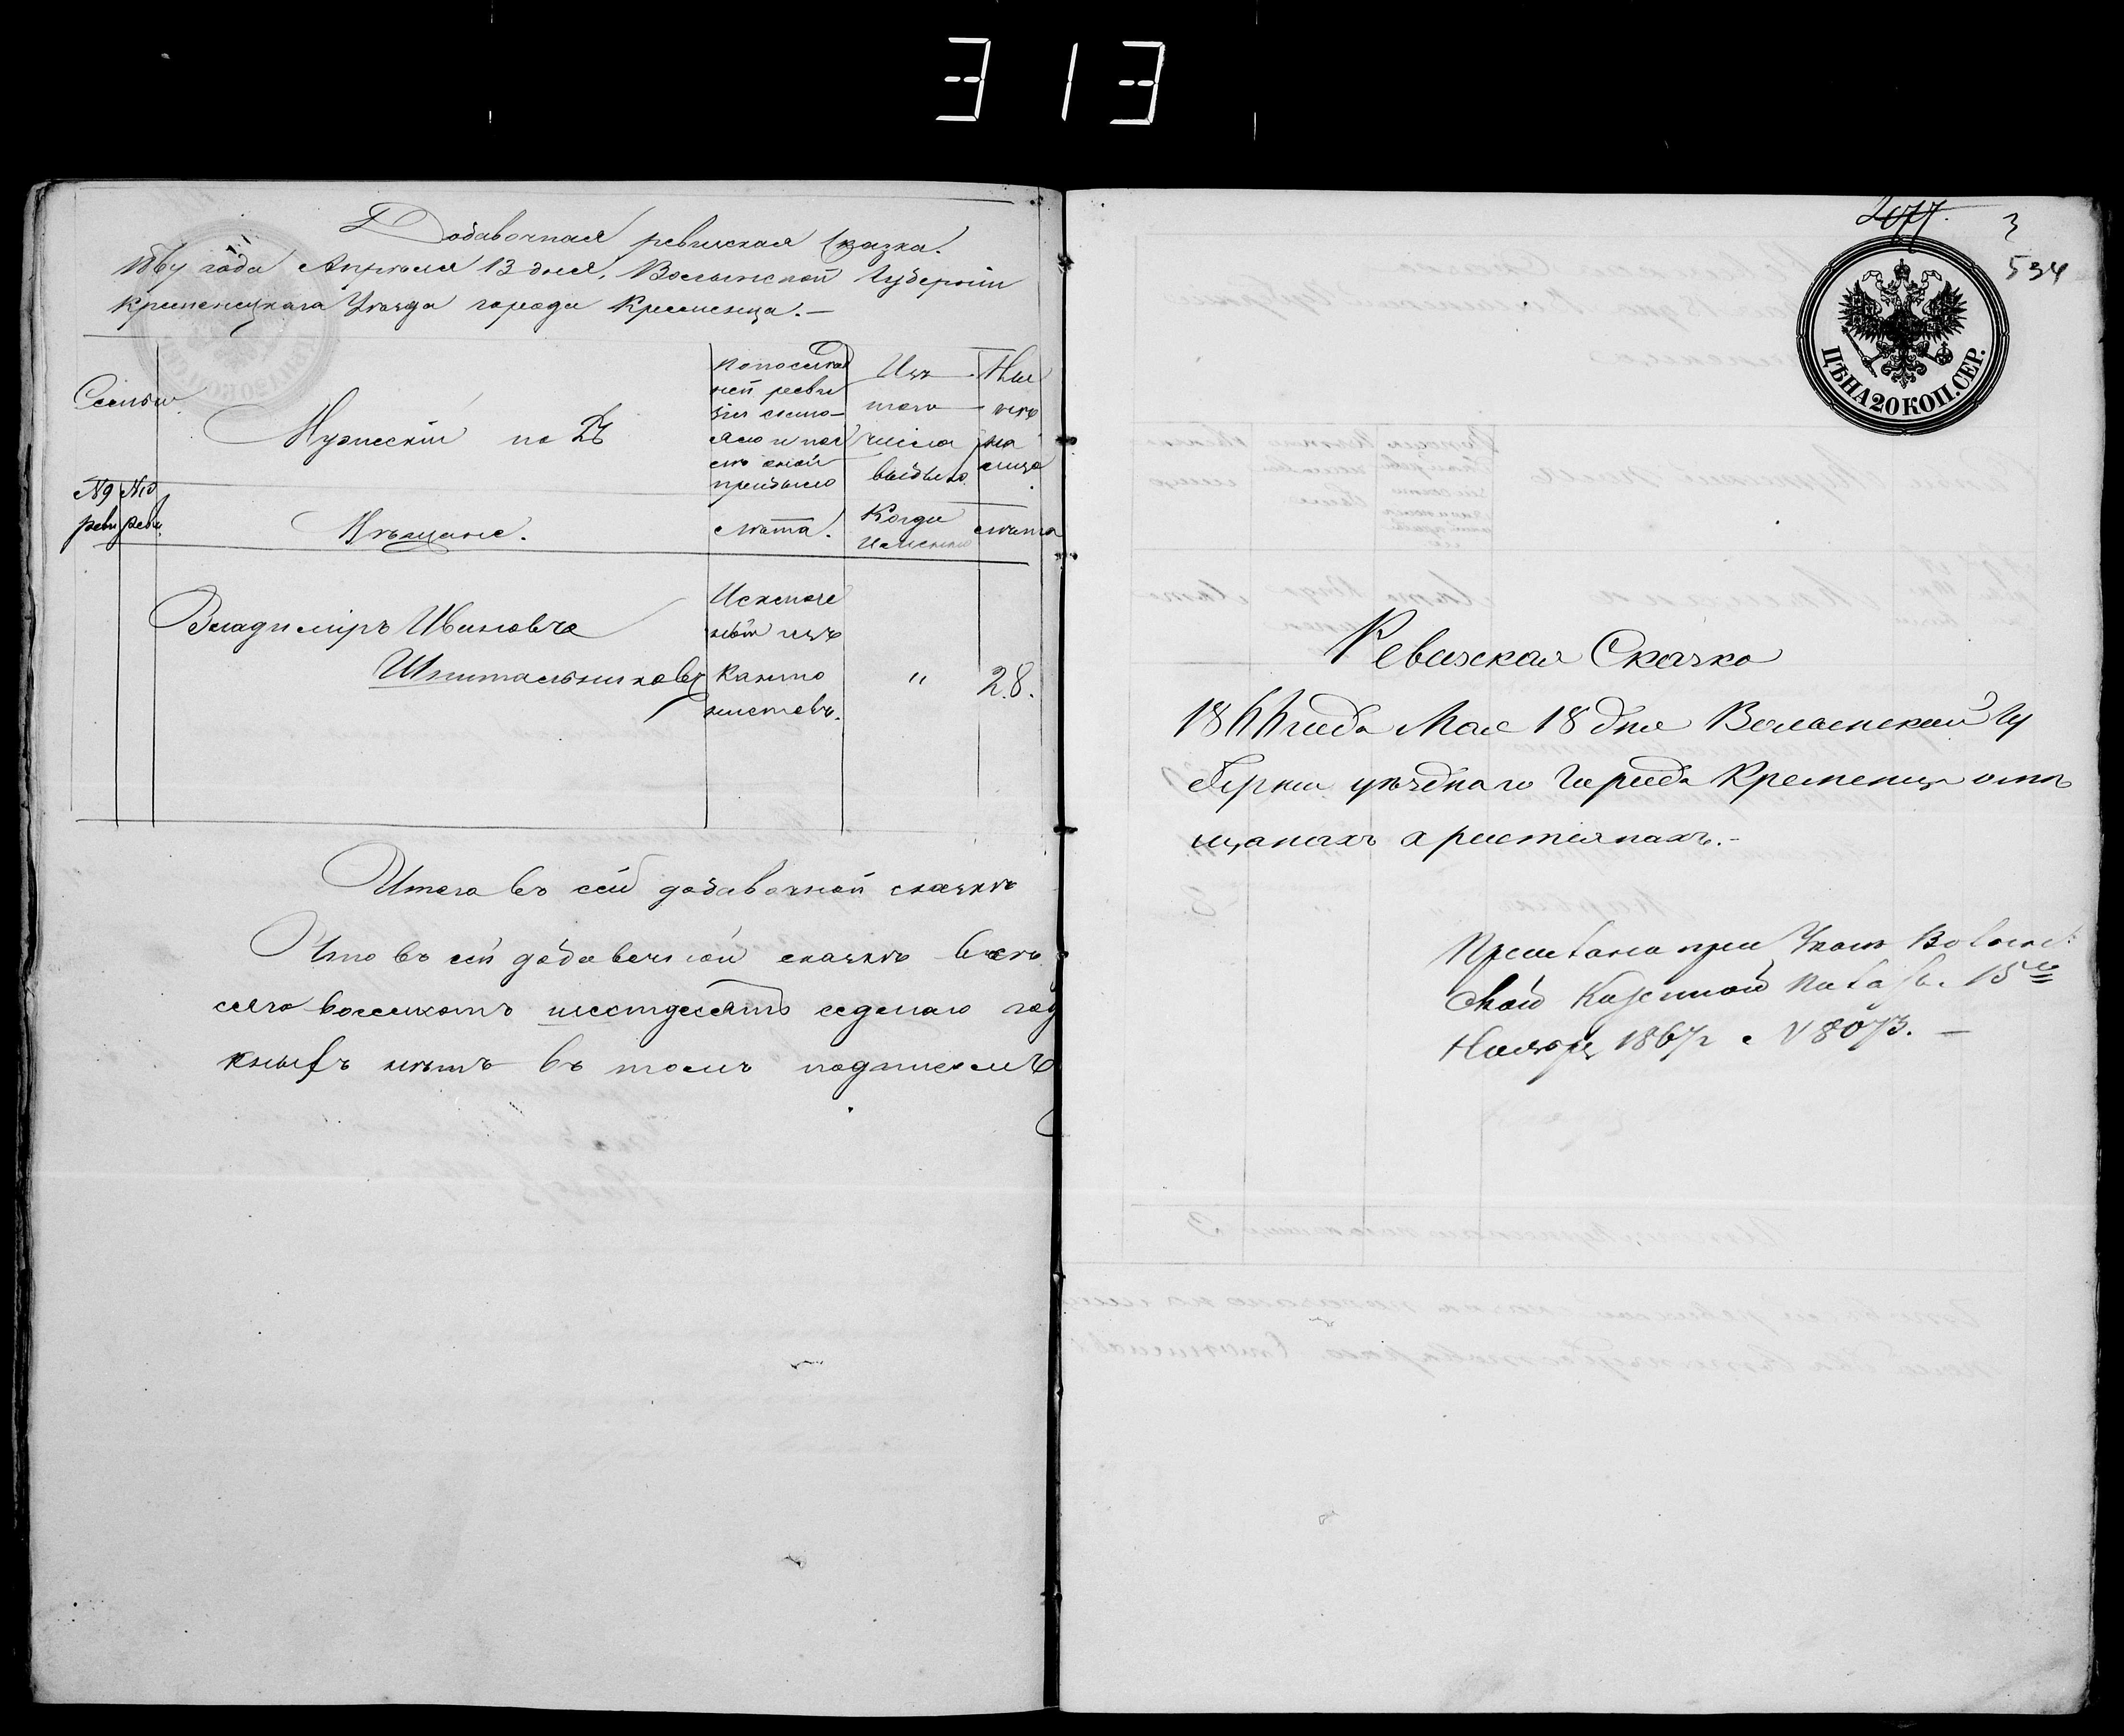 313
Добавочная ревизская сказка.
1867 года Апреля 13 дня, Волынской Губернии
Кременецкаго Уезда города Кременца.—
Семьи
Мужескій полъ
По послед
ней реви
зіи состо-
яло и пос
ле оной
прибыло
Изъ
того
числа
выбыло
Ныне
на
лицо
№ реви
№ реви
Мѣщане.
Лета.
Когда
именно
Лета
Владиміръ Ивановъ
Шпитальниковъ
Исключе
ный изъ
Канто
нистовъ.
"
28.
Итого въ сей добавочной сказкѣ
Что въ сей добавочной сказкѣ
восемсотъ шестдесятъ седмаго год
нѣтъ въ томъ подписомъ
2077.
3
534
ЦѢНА 20 КОП. СЕР.
Ревизская Сказка
1866 года Мая 18 дня Волынской Гу
берніи уѣзднаго Города Кременца о мѣ
щанахъ христіянахъ.-
При Указѣ Волын
ской Казенной Палаты 15го
Ноября 1867 г. № 8073. —